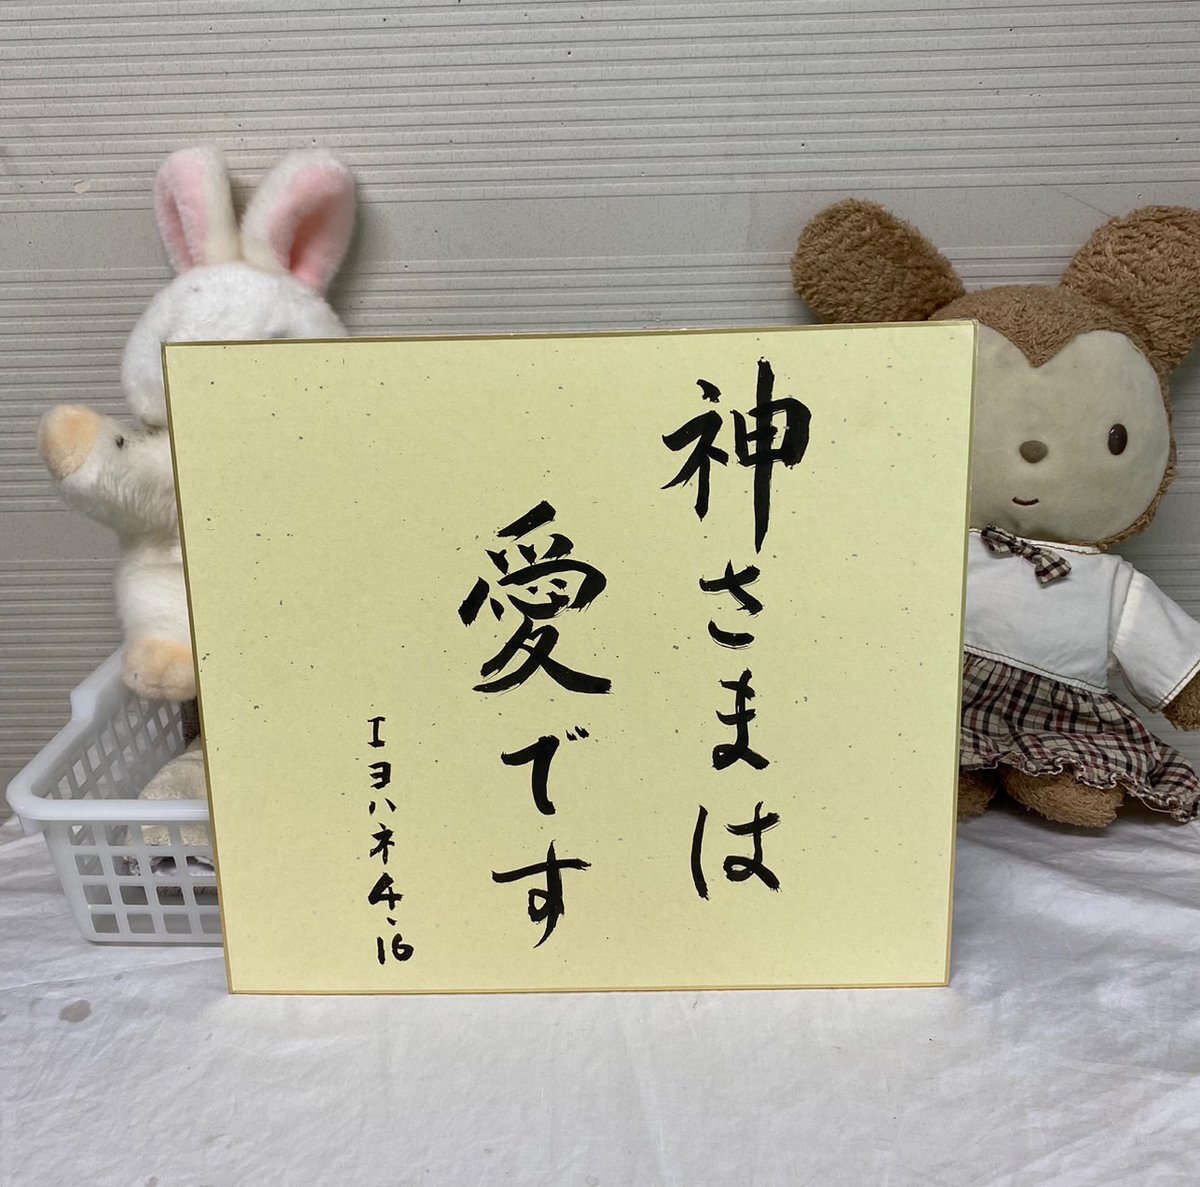 神さまは
愛です
Iヨハネ4、16